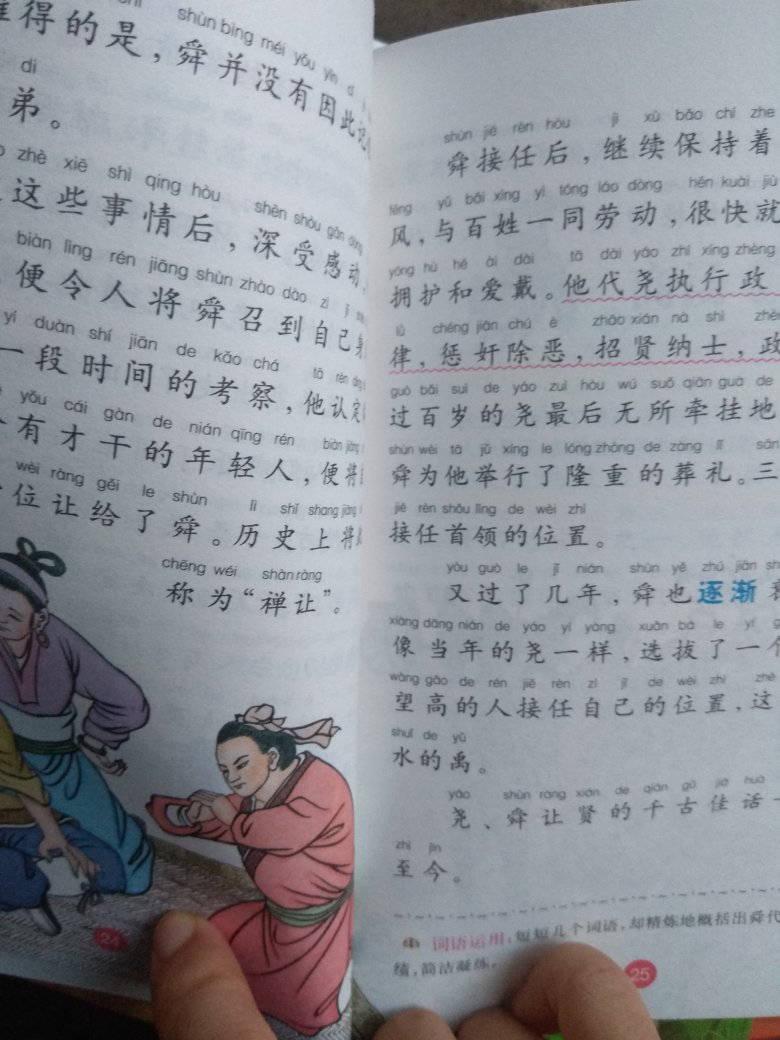 shùn bìng méi yǒu yīn
得的是，舜并没有因此记
dì
弟。
zhè xiē shì qíng hòu shēn shòu gǎn dòng
这些事情后，深受感动
biàn lìng rén jiāng shùn zhào dào zì jǐ
便令人将舜召到自己身
yí duàn shí jiān de kǎo chá tā rèn dìng
一段时间的考察，他认定
yǒu cái gàn de nián qīng rén biàn jiāng
有才干的年轻人，便将
wèi ràng gěi le shùn lì shǐ shang jiāng
位让给了舜。历史上将
chēng wéi shàn ràng
称为“禅让”。
24
shùn jiē rèn hòu jì xù bǎo chí zhe
舜接任后，继续保持着
fēng yǔ bǎi xìng yì tóng láo dòng hěn kuài jiù
风，与百姓一同劳动，很快就
yōng hù hé ài dài tā dài yáo zhí xíng zhèng
拥护和爱戴。他代尧执行政
lǜ chéng jiān chú è zhāo xián nà shì zhèng
律，惩奸除恶，招贤纳士，政
guò bǎi suì de yáo zuì hòu wú suǒ qiān guà de
过百岁的尧最后无所牵挂地
shùn wèi tā jǔ xíng le lóng zhòng de zàng lǐ sān
舜为他举行了隆重的葬礼。三
jiē rèn shǒu lǐng de wèi zhì
接任首领的位置。
yòu guò le jǐ nián shùn yě zhú jiàn
又过了几年，舜也逐渐
xiàng dāng nián de yáo yí yàng xuǎn bá le yí gè
像当年的尧一样，选拔了一个
wàng gāo de rén jiē rèn zì jǐ de wèi zhì zhè
望高的人接任自己的位置，这
shuǐ de yǔ
水的禹。
yáo shùn ràng xián de qiān gǔ jiā huà
尧、舜让贤的千古佳话
zhì jīn
至今。
词语运用：短短几个词语，却精炼地概括出舜代
绩，简洁凝练。
25